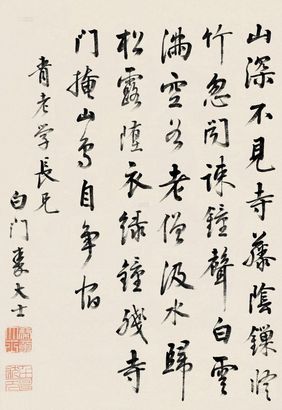 山深不見寺藤陰鏁修
竹忽闻疎鐘聲白雲
滿空谷老僧汲水歸
松露墮衣緑鐘殘寺
門掩山鳥自争宿
青老学長兄
白门秦大士